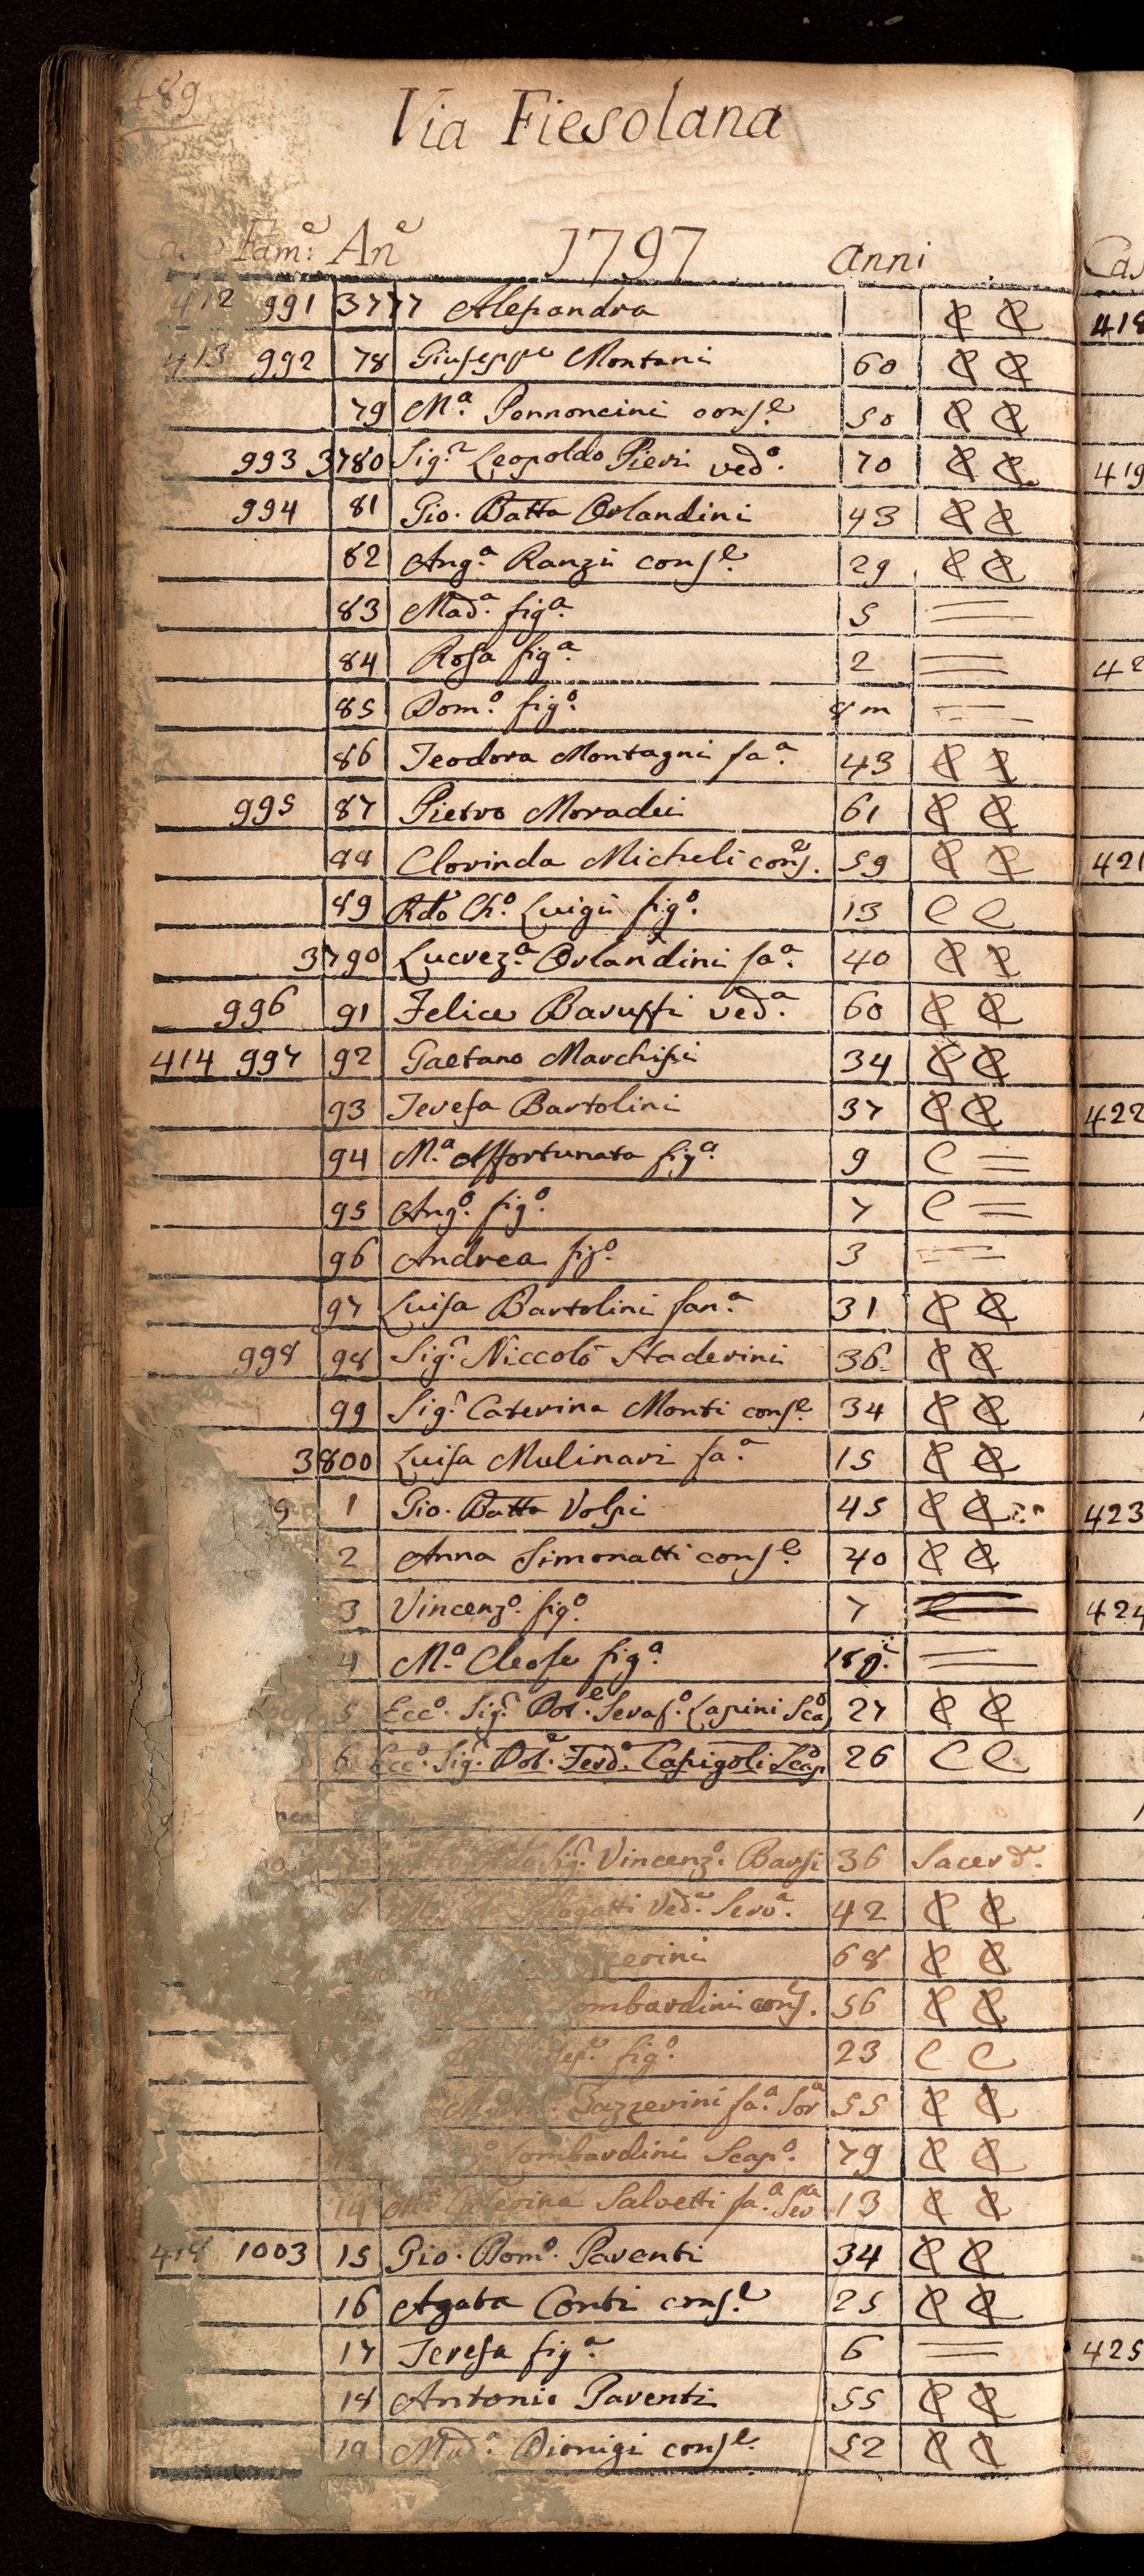 489
Via Fiesolana
Fam.e An.e 1797 anni
412 991 3777 Alessandra
413 992 78 Giuseppe Montani 60
79 M.a Pennoncini cons.e 50
993 3780 Sig.r Leopoldo Pieri ved.o 70
994 81 Gio. Batta Orlandini 43
82 Ang.a Ranzii cons.e 29
83 Mad.a fig.a 5
84 Rosa fig.a 2
85 Dom.o fig.o 8 m
86 Teodora Montagni fa.a 43
995 87 Pietro Moradei 61
88 Clorinda Micheli cons.e 59
89 Rdo Ch.o Luigii fig.o 13 C C
3790 Lucrez.a Orlandini fa.a 40
996 91 Felice Baruffi ved.a 60
414 997 92 Gaetano Marchisii 34
93 Teresa Bartolini 37
94 M.a Affortunata fig.a 9 C
95 Ang.o fig.o 7 C
96 Andrea fig.o 3
97 Luisa Bartolini fan.a 31
998 98 Sig.r Niccolò Staderini 36
99 Sig.r Caterina Monti cons.e 34
3800 Luisa Mulinari fa.a 15
9 1 Gio. Batta Volpi 45
2 Anna Simonatti cons.e 40
3 Vincenz.o fig.o 7
4 M.a Cleofe fig.a 18 g.i
5 Ecc.o Sig.r Dot.e Seraf.o Lapini Sca.o 27
6 Ecc.o Sig.r Dot.e Ferd.o Capigoli Scap.o 26 C C
Sig.r Vincenz.o Barsi 36 Sacerd.e
Ved.a Serv.a 42
68
ombardini cons. 56
fig.o 23 C C
Gazzerini fa.a Sor.a 55
Lombardini Scap.o 79
14 Caterina Salvetti fa.a Ser.a 13
418 1003 15 Gio. Dom.o Parenti 34
16 Agata Conti cons.e 25
17 Teresa fig.a 6
18 Antonio Parenti 55
19 Mad.a Dionigi cons.e 52
Cas
418
419
42
421
422
423
424
425